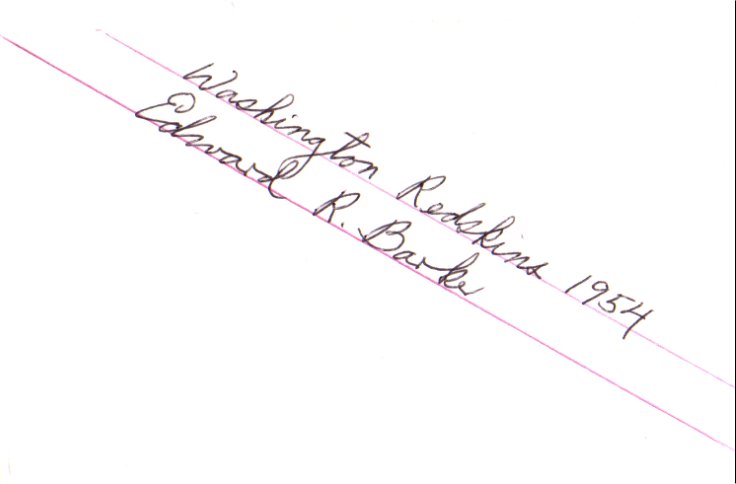 Washington Redskins 1954
Edward R. Barker